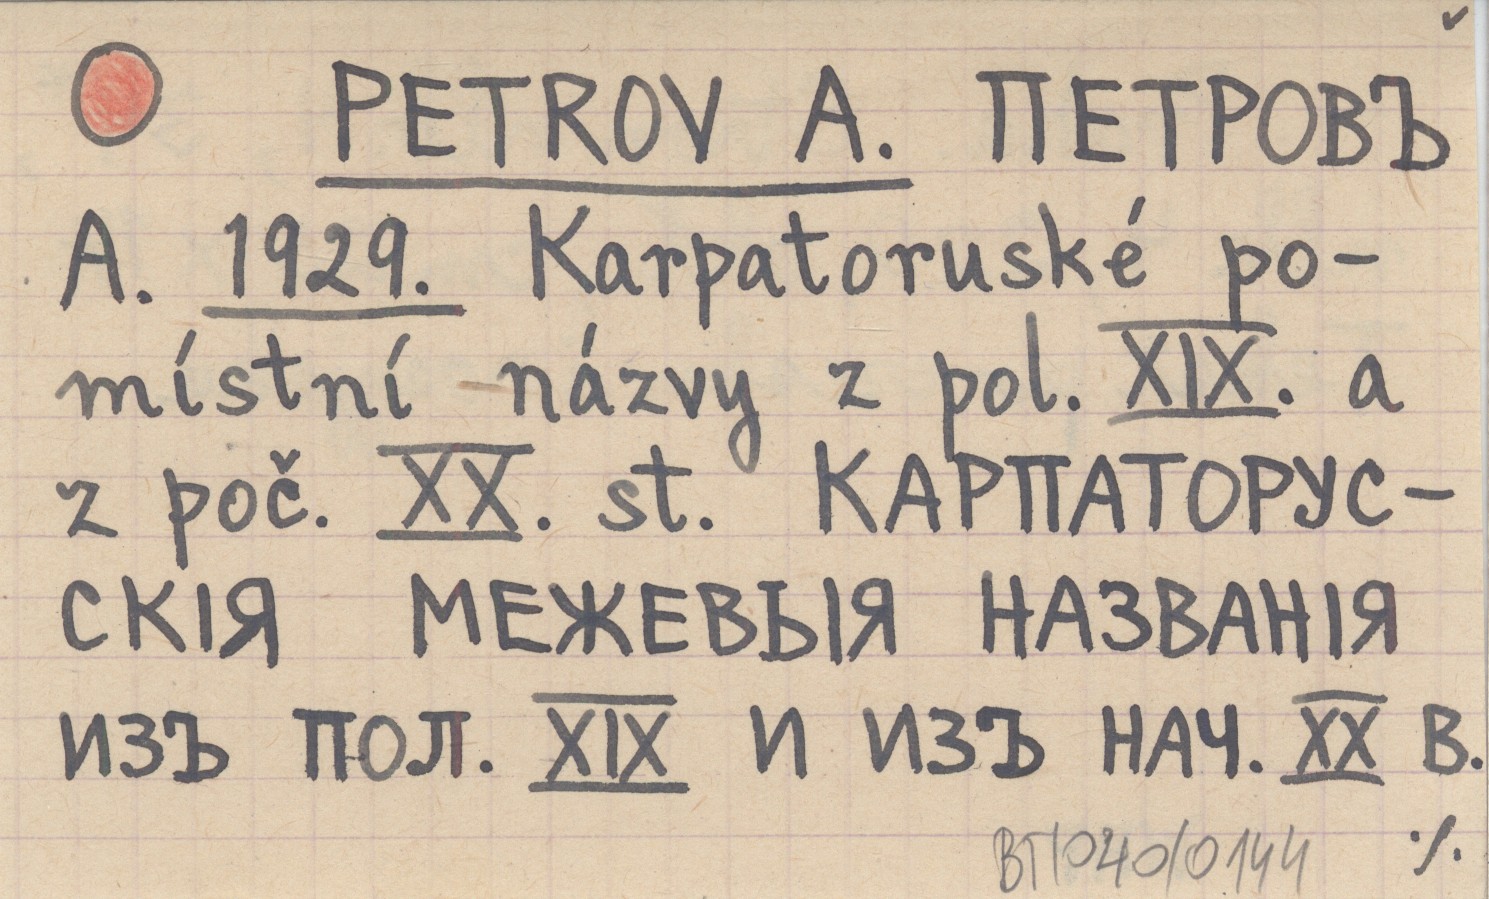 PETROV A. ПЕТРОВЪ
А. 1929. Karpatoruské po-
místní názvy z pol. XIX. a
z poč. XX. st. КАРПАТОРУС-
СКІЯ МЕЖЕВЫІЯ НАЗВАНІЯ
ИЗЪ ПОЛ. XIX И ИЗЪ НАЧ. XX В.
ВТ/040/0144 ·/.